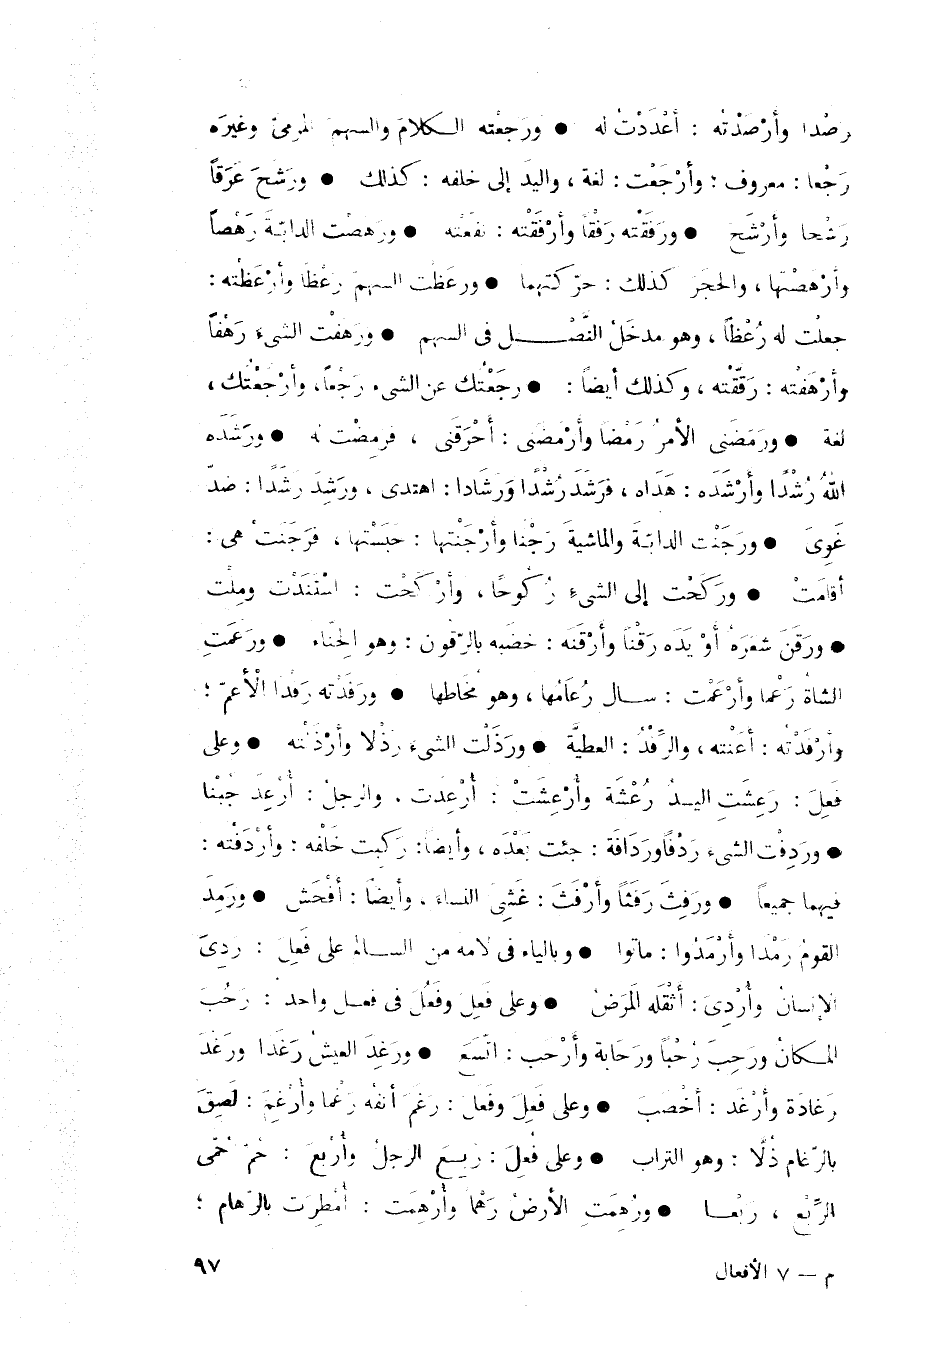 رَصْدا وأرْصَدْتُه : أعْدَدْتُ له ● ورَجعْته الكلامَ والسهمَ المرمِىّ وغيرَه
رَجْعا : معروف ؛ وأرْجَعْت : لغة ، واليدَ إلى خلفه : كذلك ● ورَشَحَ عَرَقاً
رَشْحا وأرْشَح ● ورَفَقْته رَفْقاً وأرْفَقْته : نفَعْته ● ورَهَصْت الدابّةَ رَهْصاً
وأرْهَصْتها ، والحجَرَ كذلك : حرّكتهما ● ورعَظْت السهمَ رَعْظا وأرْعَظْته :
جعلْت له رُعْظاً ، وهو مدخَلُ النَّصْل فى السهم ● ورَهفْت الشىءَ رَهْفاً
وأرْهَفْته : رَقّقْته ، وكذلك أيضاً : ● رجَعْتُك عن الشىء رَجْعاً، وأرْجَعْتُك ،
لغة ● ورَمَضَنى الأمرُ رَمْضا وأرْمضَنى : أحْرَقَنى ، فرَمِضْت له ● ورَشَدَه
اللهُ رُشْدًا وأرْشَدَه : هَدَاه ، فرَشَدَ رُشْدًا وَرَشَادا : اهتدى ، ورَشِدَ رَشَدًا : ضدّ
غَوِىَ ● ورَجَنْت الدابّةَ والماشيةَ رَجْنا وأرْجَنْتها : حبَسْتها ، فرَجَنَتْ هى :
أقامَتْ ● ورَكَحْت إلى الشىءِ رُكُوحًا، وأرْكَحْت : اسْتَنَدْت ومِلْت
● ورقَنَ شعَرَهُ أوْ يَدَه رَقْناً وأرْقَنَه : خضَبه بالرّقون : وهو الحِنّاء ● ورَعَمَتِ
الشاةُ رَعْما وأرْعَمْت : سال رُعَامُها ، وهو مُخَاطها ● ورَفَدْته رَفْدا الْأعمّ ؛
وأرْفَدْتُه : أعَنْته ، والرِّفْدُ : العطيَّة ● ورَذَلْت الشىءَ رَذْلا وأرْذَلْته ● وعلى
فَعِلَ : رَعِشَتِ اليدُ رُعْشَة وأُرْعِشَتْ : أُرعِدَت . والرجلُ : أُرْعِدَ جُبْنا
● ورَدِفْت الشىء رَدْفًا ورَدَافَة : جئت بَعْدَه ، وأيضًا: رَكِبت خَلْفه : وأرْدَفْته :
فيهما جميعاً ● ورَفِثَ رَفَثاً وأرْفَثَ : غَشِىَ النساء ، وأيضًا : أفْحَش ● ورَمِدَ
القومُ رَمْدا وأرْمَدُوا : ماتوا ● وبالياء فى لامه من السالم على فَعِلَ : رَدِىَ
الإنسانُ وأُرْدِىَ : أثْقَله المَرَضُ ● وعلى فَعِلَ وفَعُلَ فى فعل واحد : رَحُبَ
المكانُ ورَحِبَ رُحْبًا ورَحَابة وأرْحب : اتّسَعَ ● ورَغِدَ العيشُ رَغَدا ورَغُدَ
رَغادَة وأرْغَد : أخْصَبَ ● وعلى فَعِلَ وفَعَل : رَغم أنفُه رَغْما وأُرْغِمَ : لَصِقَ
بالرّغام ذُلًّا : وهو التراب ● وعلى فُعِلَ : رُبِعَ الرجلُ وأُرْبعَ : حُمّ حُمّى
الرِّبْع ، رَبْعا ● ورُهِمَتِ الأرضُ رَهْماً وأُرْهِمَت : أُمْطِرَت بالرِّهام ؛
م — ٧ الأفعال
٩٧